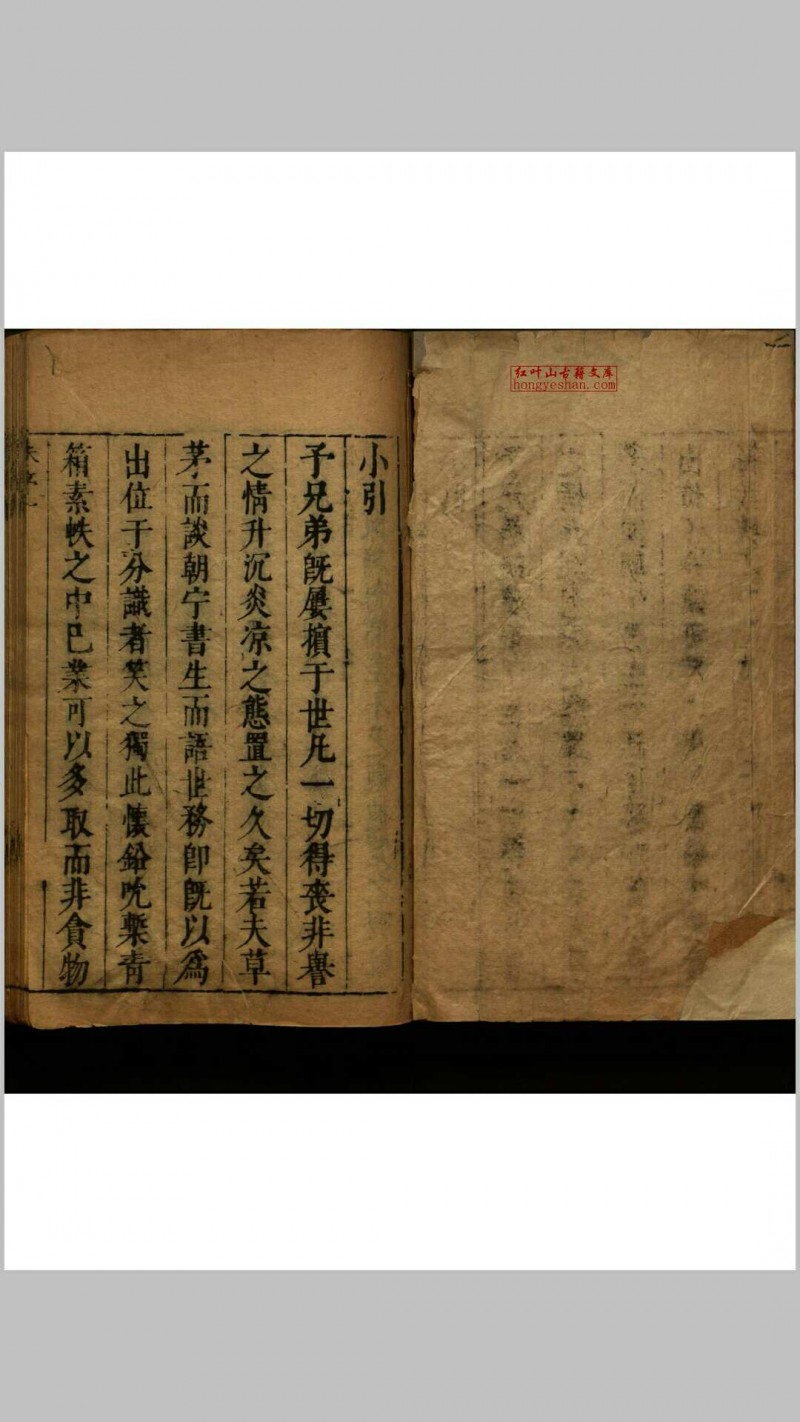 红叶山古籍文库
hongyeshan.com
小引
予兄弟旣屢擯于世凡一切得喪非譽
之情升沉炎凉之態置之久矣若夫草
茅而談朝宁書生而語世務卽旣以爲
出位于分識者笑之獨此懷鉛吮槧靑
箱素帙之中巳業可以多取而非貪物